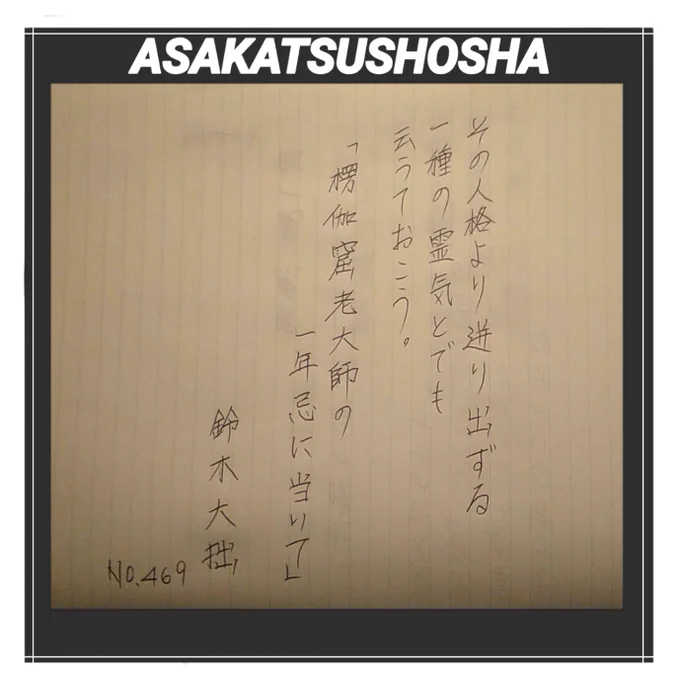 ASAKATSUSHOSHA
その人格より迸り出ずる
一種の霊気とでも
云うておこう。
「楞伽窟老大師の
一年忌に当いて」
鈴木大拙
No.469